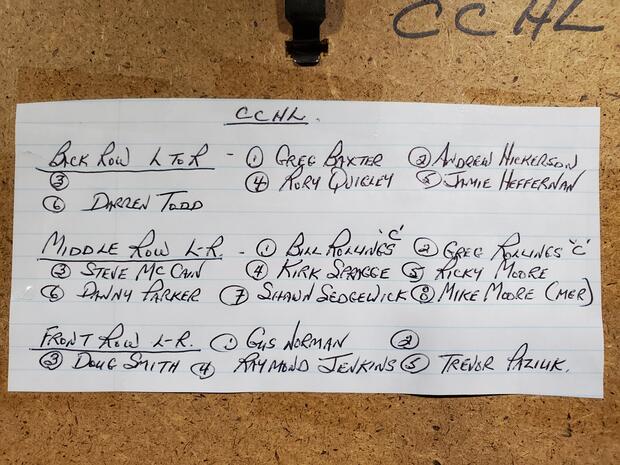 CCHL
CCHL.
BACK ROW L TO R - ① GREG BAXTER ② ANDREW HICKERSON
③ ④ RORY QUIGLEY ⑤ JAMIE HEFFERNAN
⑥ DARREN TODD
MIDDLE ROW L-R. - ① BILL ROLLINGS 'C' ② GREG ROLLINGS 'C'
③ STEVE MCCAIN ④ KIRK SPRAGGE ⑤ RICKY MOORE
⑥ DANNY PARKER ⑦ SHAWN SEDGEWICK ⑧ MIKE MOORE (MER)
FRONT ROW L-R. ① GUS NORMAN ②
③ DOUG SMITH ④ RAYMOND JENKINS ⑤ TREVOR PAZIUK.